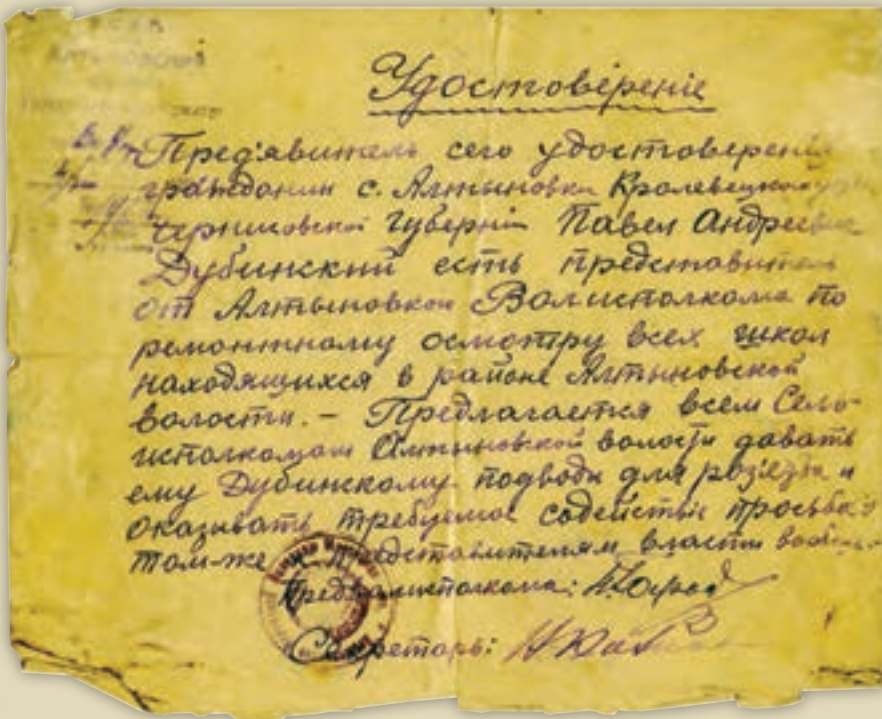 Удостоверенiе
Предявитель сего удостоверенiя
гражданин с. Алтыновки Кролевецкого
Черниговской губернiи Павел Андреевич
Дубинский есть представитель
от Алтыновкои Волисполкома по
ремонтному осмотру всех школ
находящихся в районе Алтыновской
волости. – Предлагается всем Сель-
исполкомам Алтыновской волости давать
ему Дубинскому подводы для розезда и
оказывать требуемое содействие просьба
том-же к представителям власти
Предволисполкома:
Секретарь: